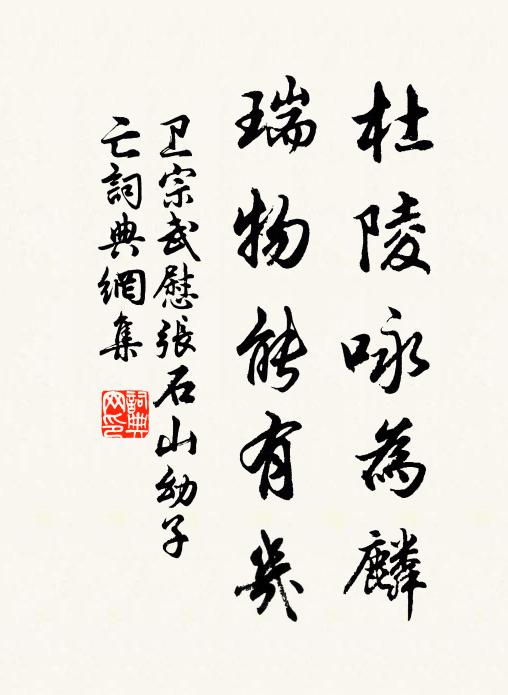 杜陵咏為麟
瑞物能有幾
卫宗武慰張石山幼子
亡詞典網集
詞典網印